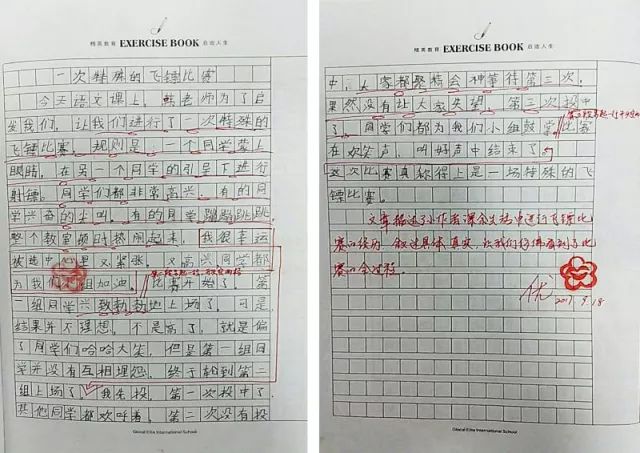 精英教育 EXERCISE BOOK 启迪人生
一次特殊的飞镖比赛
今天语文课上，熊老师为了启
发我们，让我们进行了一次特殊的
飞镖比赛。规则是一个同学蒙上
眼睛，在另一个同学的引导下进行
射镖。同学们都非常高兴，有的同
学兴奋的尖叫。有的同学蹦蹦跳跳
整个教室顿时热闹起来，我很幸运
被选中，心里又紧张，又高兴，同学都
为我们组加油。比赛开始了，第
一组同学兴致勃勃地上场了，可是
结果并不理想。不是高了，就是偏
了同学们哈哈大笑，但是第一组同
学并没有互相埋怨。终于轮到第二
组上场了，我先投，第一次投中了
其他同学都欢呼着，第二次没有投
Glocal Elite International School
精英教育 EXERCISE BOOK 启迪人生
中，大家都聚精会神等待第三次，
果然没有让大家失望，第三次投中
了，同学们都为我们小组鼓掌。比赛
在欢笑声，叫好声中结束了。
这次比赛真称得上是一场特殊的飞
镖比赛。
文章描述了小作者课余生活中进行飞镖比
赛的经历，叙述具体、真实，让我们仿佛看到了比
赛的全过程。
优
2017.9.18
Glocal Elite International School